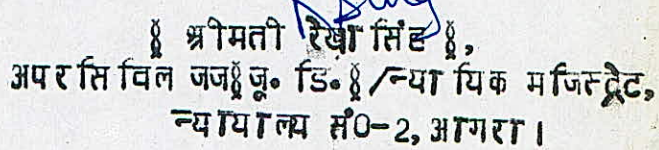 § श्रीमती रेखा सिंह §,
अपर सिविल जज§जू० डि०§/न्यायिक मजिस्ट्रेट,
न्यायालय सं0-2, आगरा।